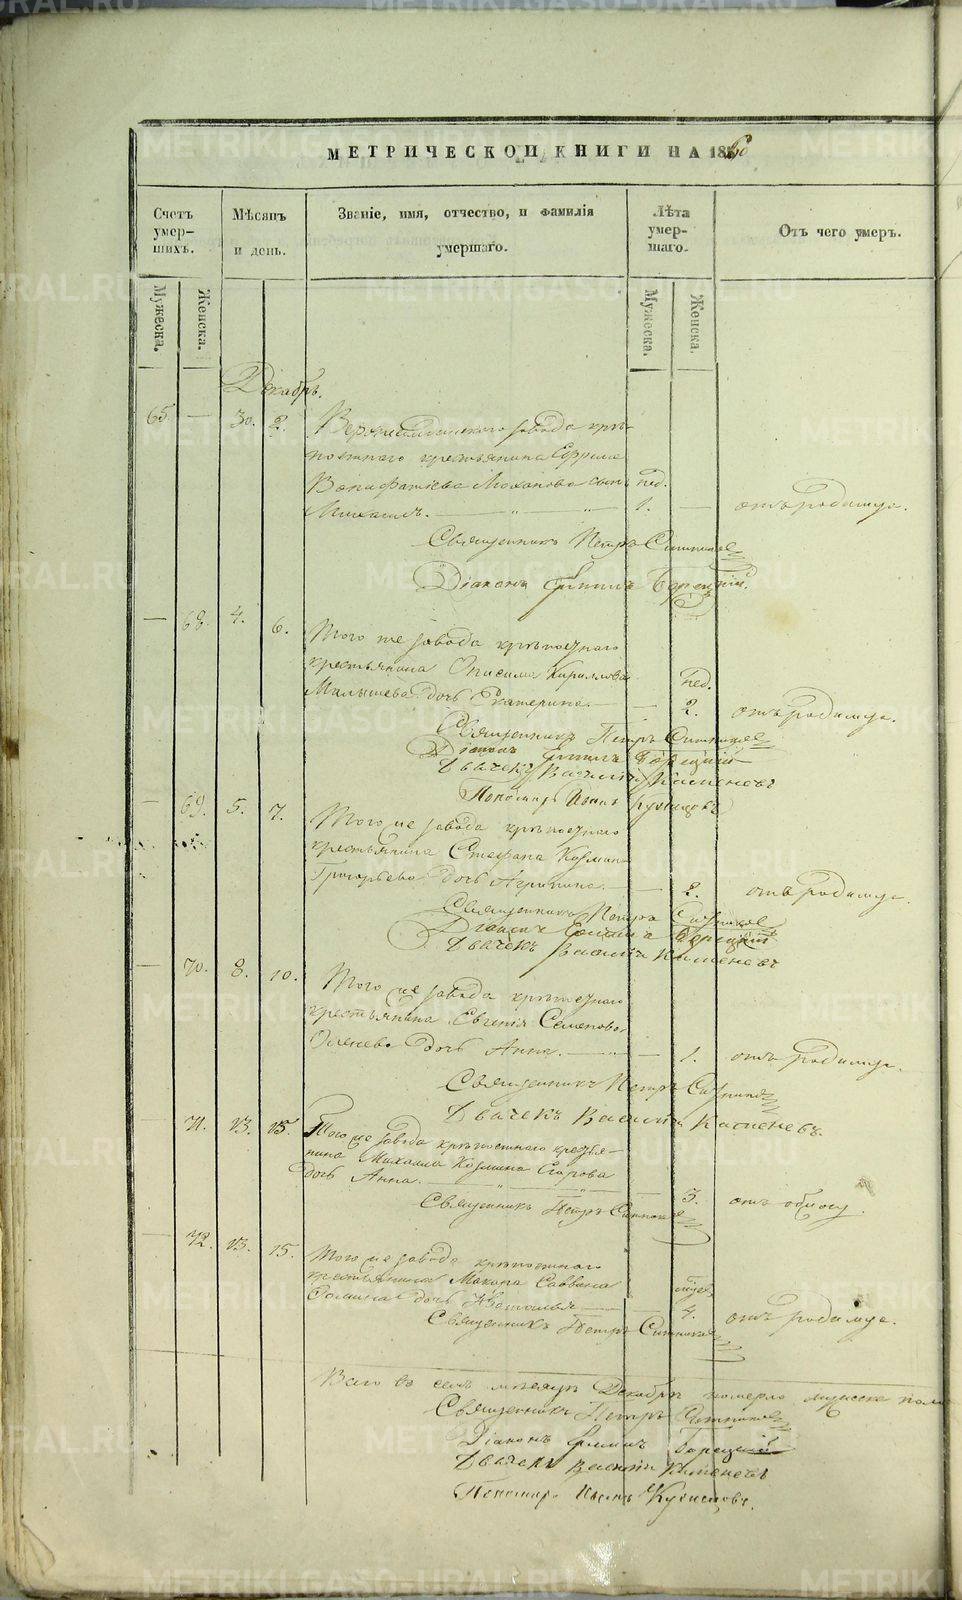 МЕТРИЧЕСКОЙ КНИГИ НА 1860
Счетъ умершихъ.
Мѣсяцъ и день.
Званіе, имя, отчество, и фамилія умершаго.
Лѣта умершаго.
Отъ чего умеръ.
Мужеска.
Женска.
Мужеска.
Женска.
Декабрь.
65 — 30. 2.
завода крѣ-
постнаго крестьянина Ефрема
Вонифатіева сынъ нед.
Михаилъ. — " — " — 1. — отъ родимца.
Священникъ Петръ Ситников
Діаконъ Борецкій.
— 68. 4. 6. Того же завода крѣпостнаго
крестьянина Онисима Кирилова
Малышева дочь Екатерина. — — нед. 2. отъ родимца.
Священникъ Петръ Ситников
Діаконъ Борецкій
Дьячекъ Василій Каменевъ
Пономарь Кузнецовъ
— 69. 5. 7. Того же завода крѣпостнаго
крестьянина Стефана Козмина
Григорьева дочь Агрипина. — — 2. отъ родимца.
Священникъ Петръ Ситников
Діаконъ Борецкій
Дьячекъ Василій Каменевъ
— 70. 8. 10. Того же завода крѣпостнаго
крестьянина Евгенія Семенова
дочь Анна. — " — 1. отъ родимца.
Священникъ Петръ Ситников
Дьячекъ Василій Каменевъ.
— 71. 13. 15. Того же завода крѣпостнаго крестья-
нина Михаила Козмина Егорова
дочь Анна. — " — 3. отъ
Священникъ Петръ Ситников
— 72. 13. 15. Того же завода крѣпостнаго
крестьянина Саввина
дочь Наталья — — 4. отъ родимца.
Священникъ Петръ Ситников
Всего въ семъ мѣсяцѣ Декабрѣ померло мужеска пола
Священникъ Петръ Ситников
Діаконъ Борецкій
Дьячекъ Василій Каменевъ
Пономарь Кузнецовъ.
METRIKI.GASO-URAL.RU